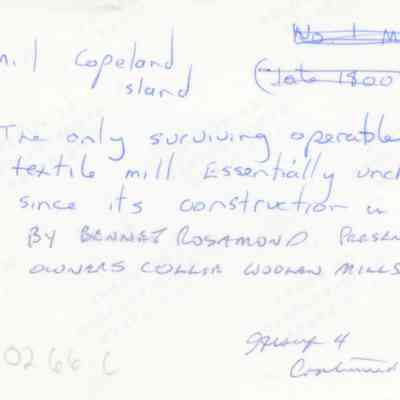 No. 1 M
Mill Copeland
(Late 1800
sland
The only surviving operable
textile mill Essentially unch
since its construction in
BY BENNET ROSAMOND PRESEN
OWNERS COLLIE WOOLEN MILLS
Group 4
0266 C
Continued